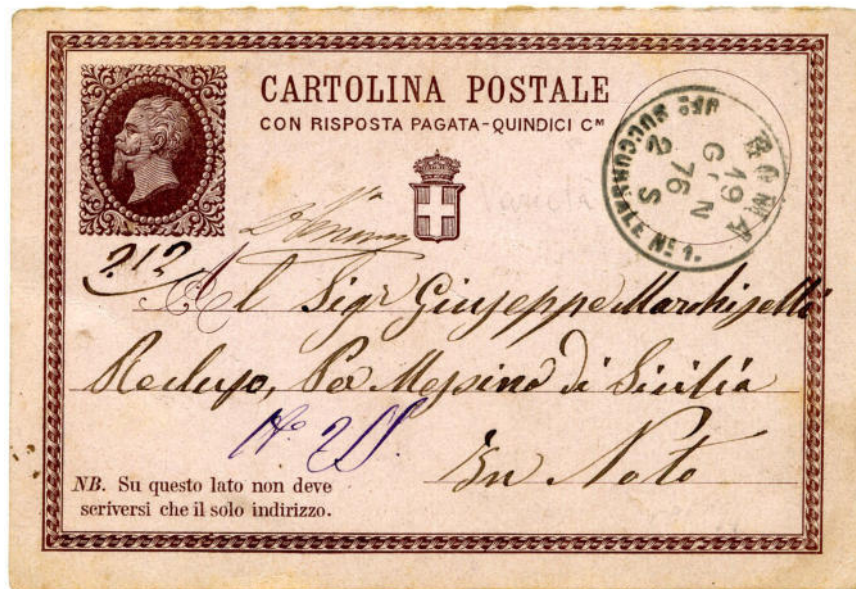 CARTOLINA POSTALE
CON RISPOSTA PAGATA-QUINDICI Cᴹ
ROMA
19
GIN
76
2 S
SUCCURSALE Nº 1.
Varietà
212
Al Sigʳ Giuseppe Marchiselli
Recluso, Per Messina di Sicilia
In Noto
Nº 2
NB. Su questo lato non deve
scriversi che il solo indirizzo.